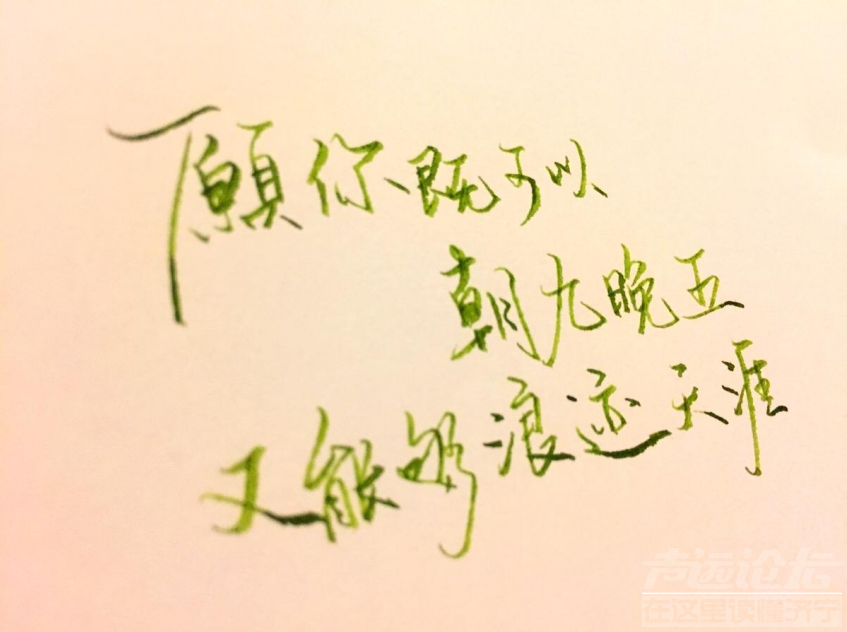 願你既可以
朝九晚五
又能够浪迹天涯
声远论坛
在这里读懂济宁